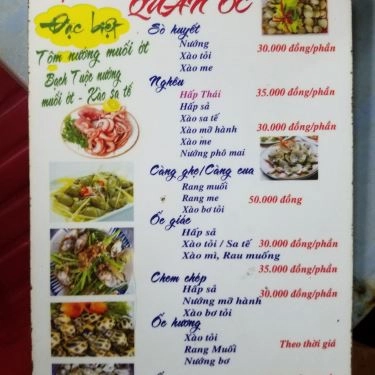 QUÁN ỐC
Đặc biệt
Tôm nướng muối ớt
Bạch Tuộc nướng
muối ớt - Xào sa tế
Sò huyết
Nướng
Xào tỏi
Xào me
30.000 đồng/phần
Nghêu
Hấp Thái
35.000 đồng/phần
Hấp sả
Xào sa tế
Xào mỡ hành
30.000 đồng/phần
Xào me
Nướng phô mai
Càng ghẹ/Càng cua
Rang muối
Rang me
50.000 đồng
Xào bơ tỏi
Ốc giác
Hấp sả
Xào tỏi / Sa tế 30.000 đồng/phần
Xào mì, Rau muống
35.000 đồng/phần
Chem chép
Hấp sả
30.000 đồng/phần
Nướng mỡ hành
Xào bơ tỏi
Ốc hương
Xào tỏi
Theo thời giá
Rang Muối
Nướng bơ